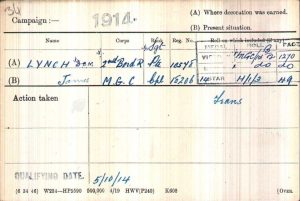 Campaign :— 1914
(A) Where decoration was earned.
(B) Present situation.
Name Corps Rank Reg. No. Roll on which included (if any)
MEDAL ROLL PAGE
Sgt
(A) LYNCH 2nd Bord R Pte 10578
do do
(B) James M.G.C. Cpl 15206 14 STAR H/1/2 H9
Action taken
Trans
QUALIFYING DATE. 5/10/14
(6 34 46) W234—HP5590 500,000 4/19 HWV(P240) K608 [Over.